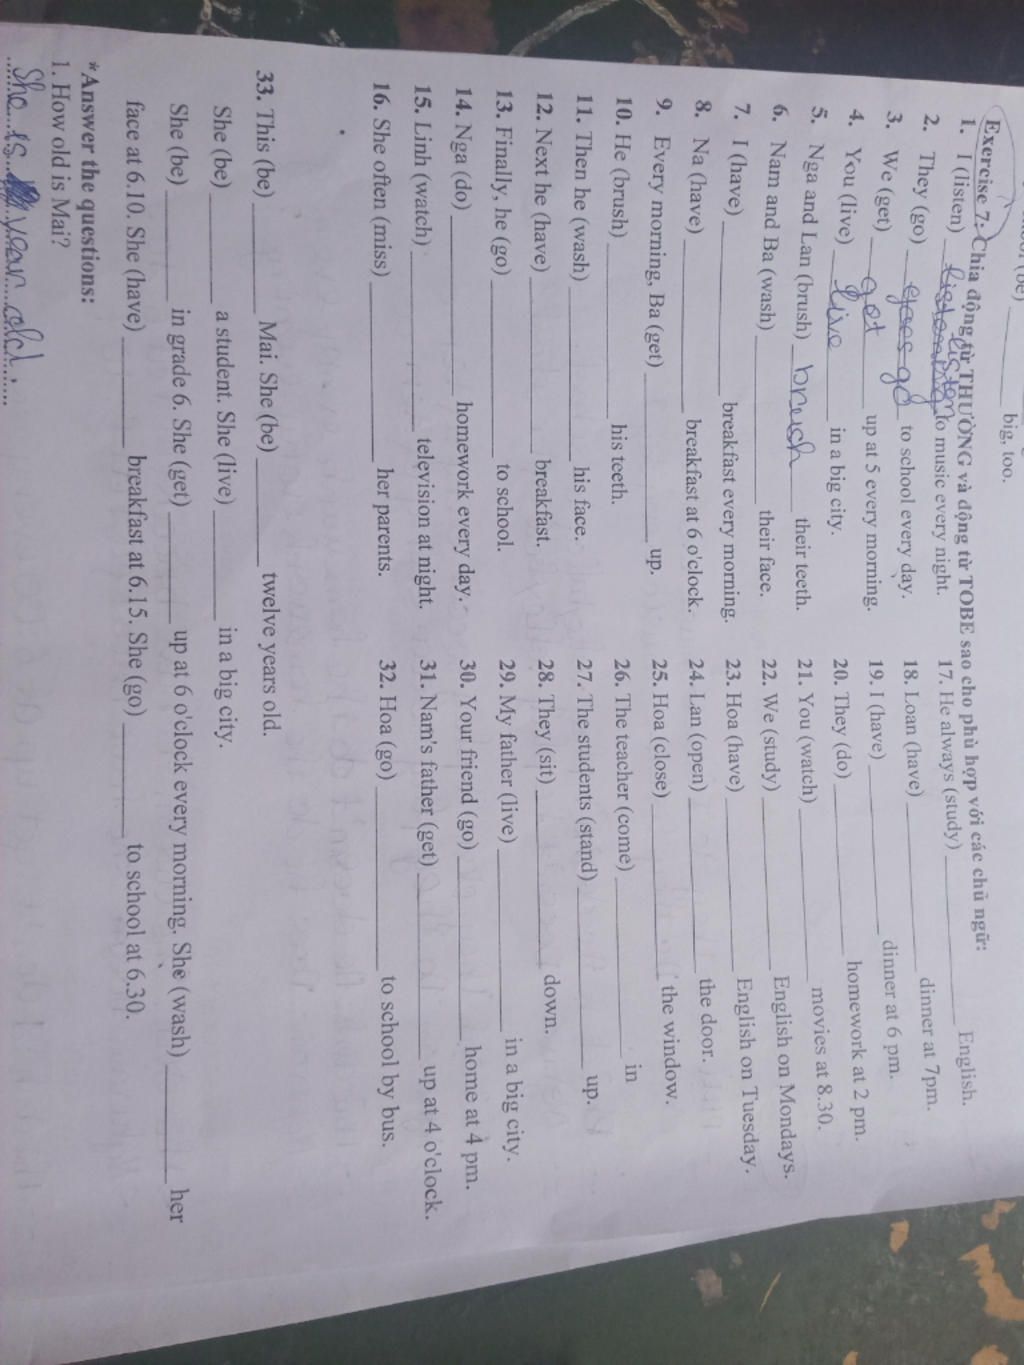 (be) ________ big, too.
Exercise 7: Chia động từ THƯỜNG và động từ TOBE sao cho phù hợp với các chủ ngữ:
1. I (listen) listen to music every night.
2. They (go) go to school every day.
3. We (get) get up at 5 every morning.
4. You (live) live in a big city.
5. Nga and Lan (brush) brush their teeth.
6. Nam and Ba (wash) ________ their face.
7. I (have) ________ breakfast every morning.
8. Na (have) ________ breakfast at 6 o'clock.
9. Every morning, Ba (get) ________ up.
10. He (brush) ________ his teeth.
11. Then he (wash) ________ his face.
12. Next he (have) ________ breakfast.
13. Finally, he (go) ________ to school.
14. Nga (do) ________ homework every day.
15. Linh (watch) ________ television at night.
16. She often (miss) ________ her parents.
17. He always (study) ________ English.
18. Loan (have) ________ dinner at 7pm.
19. I (have) ________ dinner at 6 pm.
20. They (do) ________ homework at 2 pm.
21. You (watch) ________ movies at 8.30.
22. We (study) ________ English on Mondays.
23. Hoa (have) ________ English on Tuesday.
24. Lan (open) ________ the door.
25. Hoa (close) ________ the window.
26. The teacher (come) ________ in
27. The students (stand) ________ up.
28. They (sit) ________ down.
29. My father (live) ________ in a big city.
30. Your friend (go) ________ home at 4 pm.
31. Nam's father (get) ________ up at 4 o'clock.
32. Hoa (go) ________ to school by bus.
33. This (be) ________ Mai. She (be) ________ twelve years old.
She (be) ________ a student. She (live) ________ in a big city.
She (be) ________ in grade 6. She (get) ________ up at 6 o'clock every morning. She (wash) ________ her
face at 6.10. She (have) ________ breakfast at 6.15. She (go) ________ to school at 6.30.
*Answer the questions:
1. How old is Mai?
She is year old.